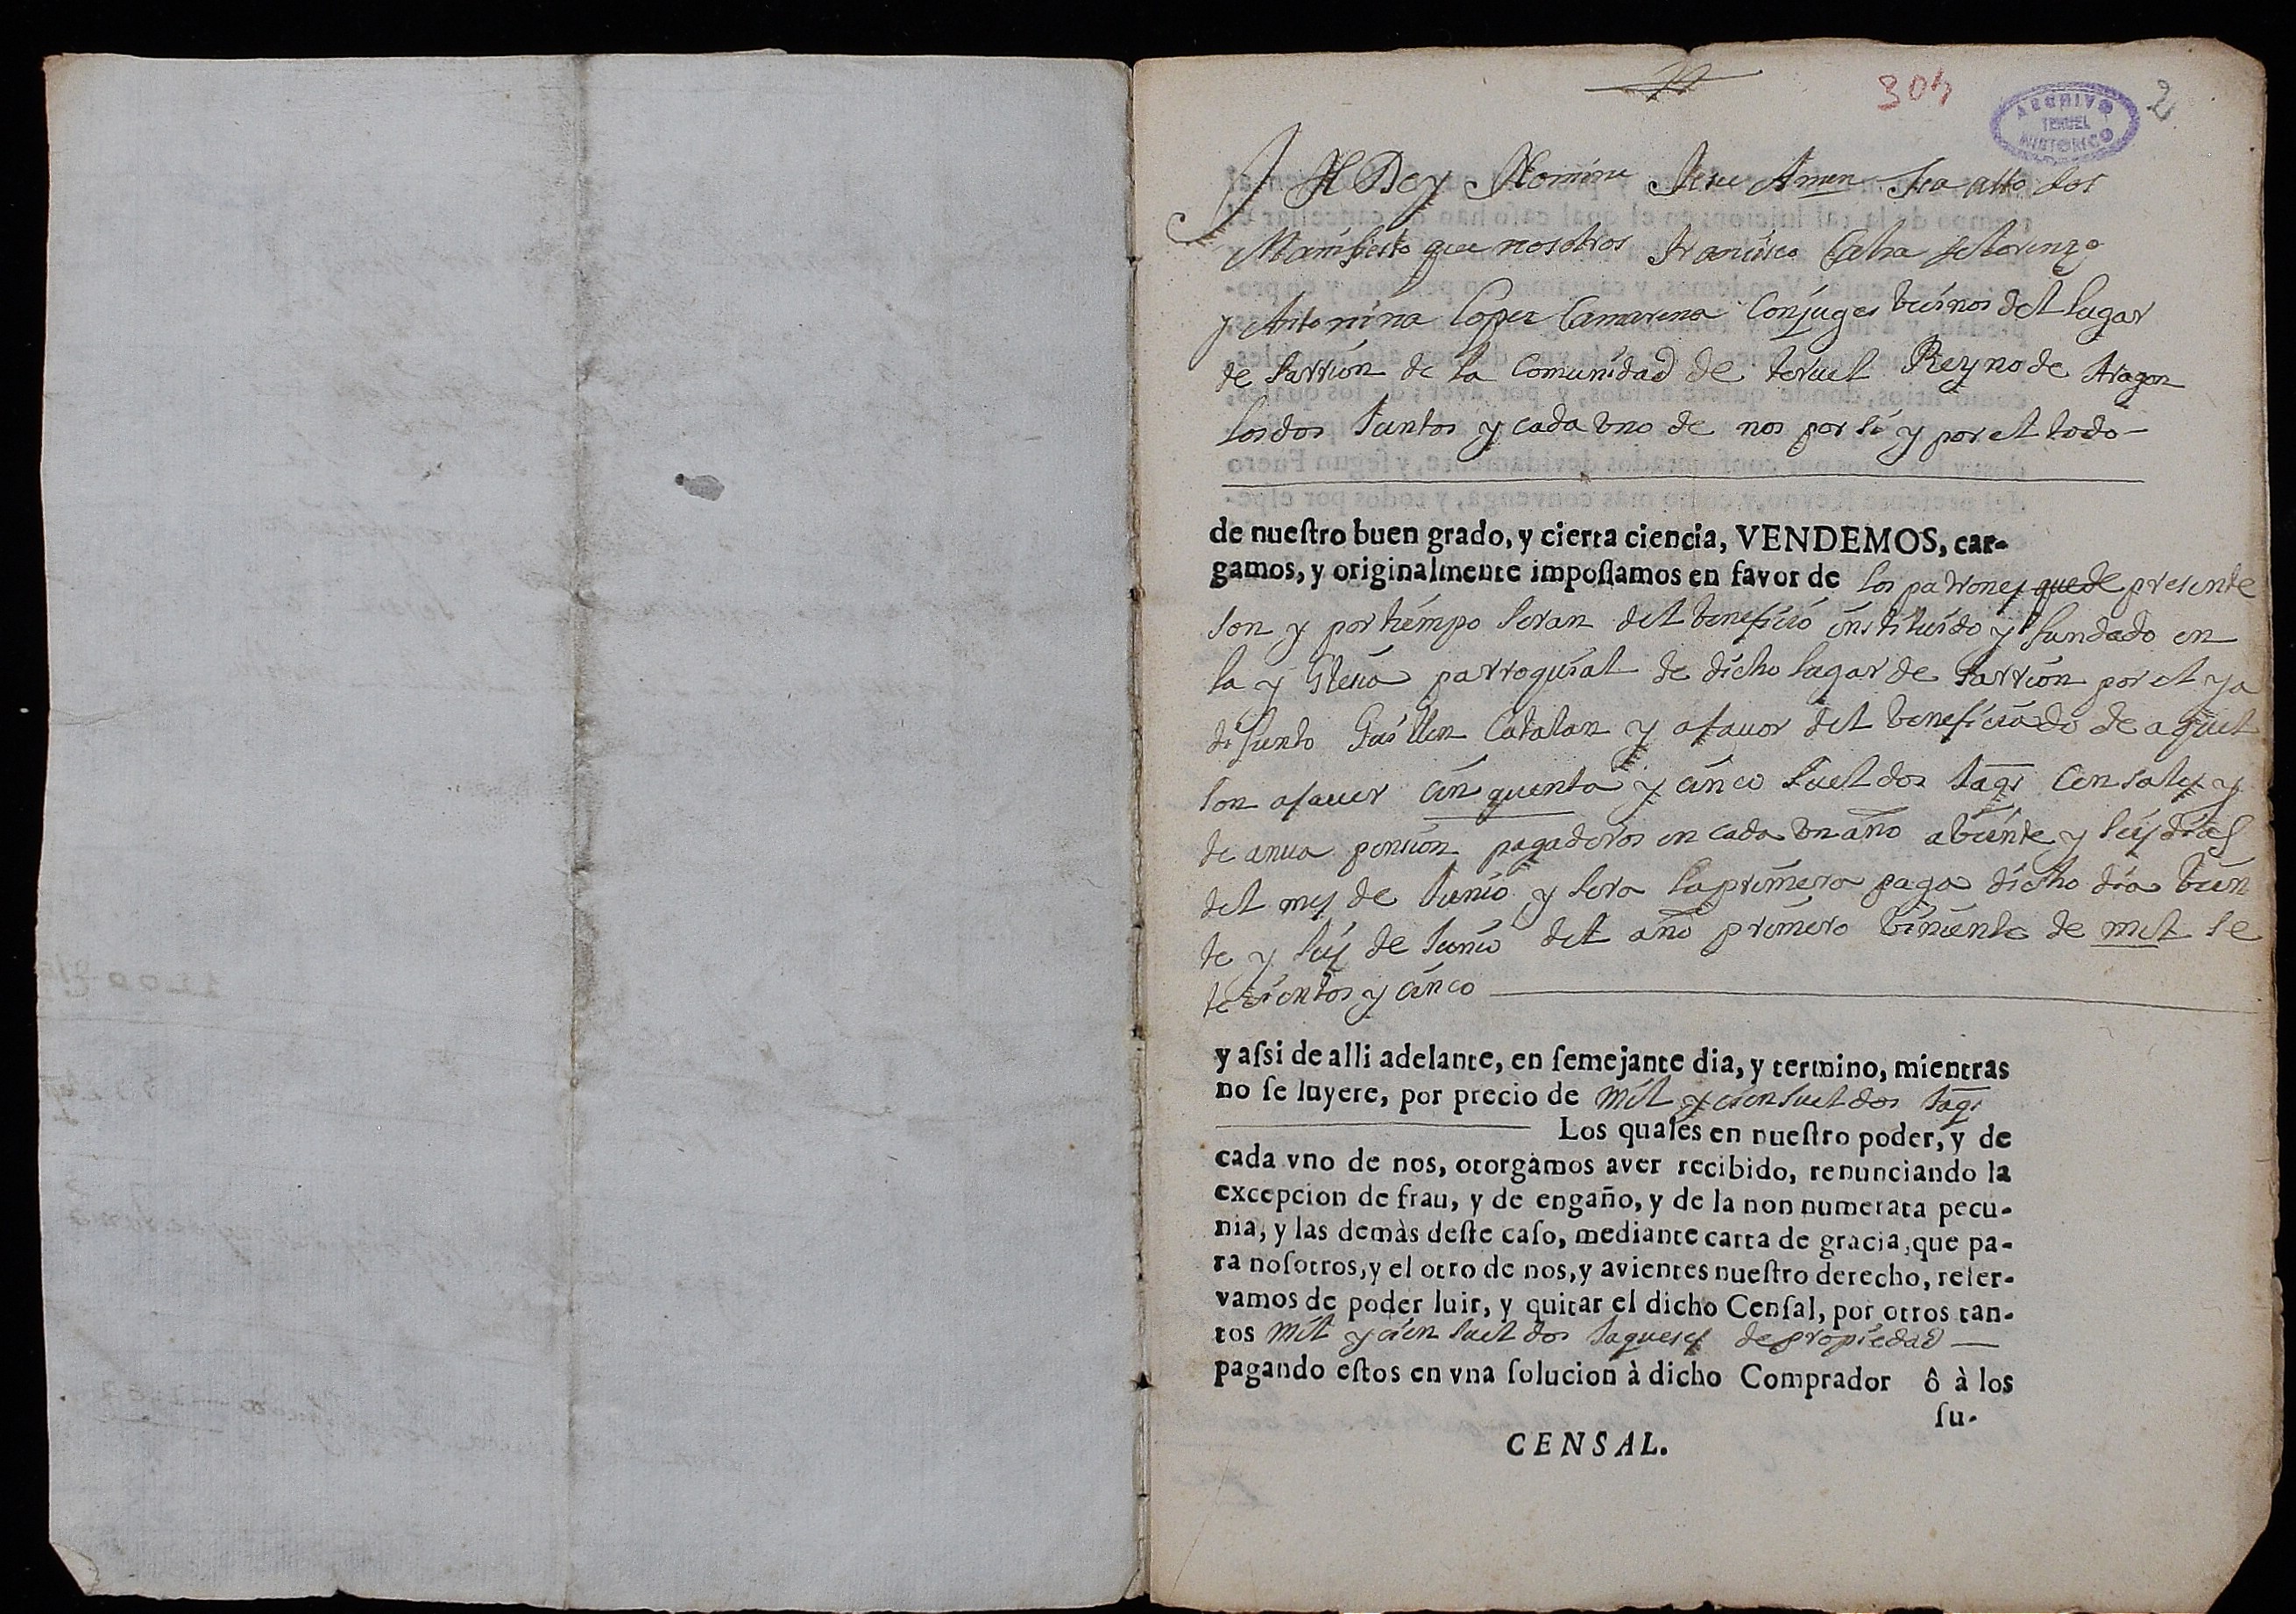 304
2
ARCHIVO
TERUEL
HISTORICO
In Dey Nomine Jesu Amen Sea atto dos
Manifiesto que nosotros Francisco de Lorenzo
y Antonina Lopez Camarena Conjuges vecinos del lugar
de Sarrion de la Comunidad de teruel Reyno de Aragon
los dos Juntos y cada vno de nos por si y por el todo
de nueſtro buen grado, y cierta ciencia, VENDEMOS, car-
gamos, y originalmente impoſſamos en favor de los patrones que de presente
son y por tiempo seran del beneficio instituido y fundado en
la yglesia parroquial de dicho lugar de Sarrion por el ya
difunto Guillen Catalan y afauor del beneficiado de aquel
son a sauer cinquenta y cinco sueldos Jaqs Censales y
de anua pension pagaderos en cada vn año a veinte y seys dias
del mes de Junio y sera la primera paga dicho dia vein
te y seys de Junio del año primero viniente de mil se
tecientos y cinco
y aſsi de alli adelante, en ſemejante dia, y termino, mientras
no ſe luyere, por precio de mil y cien sueldos Jaqs
Los quales en nueſtro poder, y de
cada vno de nos, otorgamos aver recibido, renunciando la
excepcion de frau, y de engaño, y de la non numerata pecu-
nia, y las demàs deſte caſo, mediante carta de gracia, que pa-
ra noſotros, y el otro de nos, y avientes nueſtro derecho, reſer-
vamos de poder luir, y quitar el dicho Cenſal, por otros tan-
tos mil y cien sueldos Jaqueses de propiedad
pagando eſtos en vna ſolucion à dicho Comprador ô à los
ſu-
CENSAL.